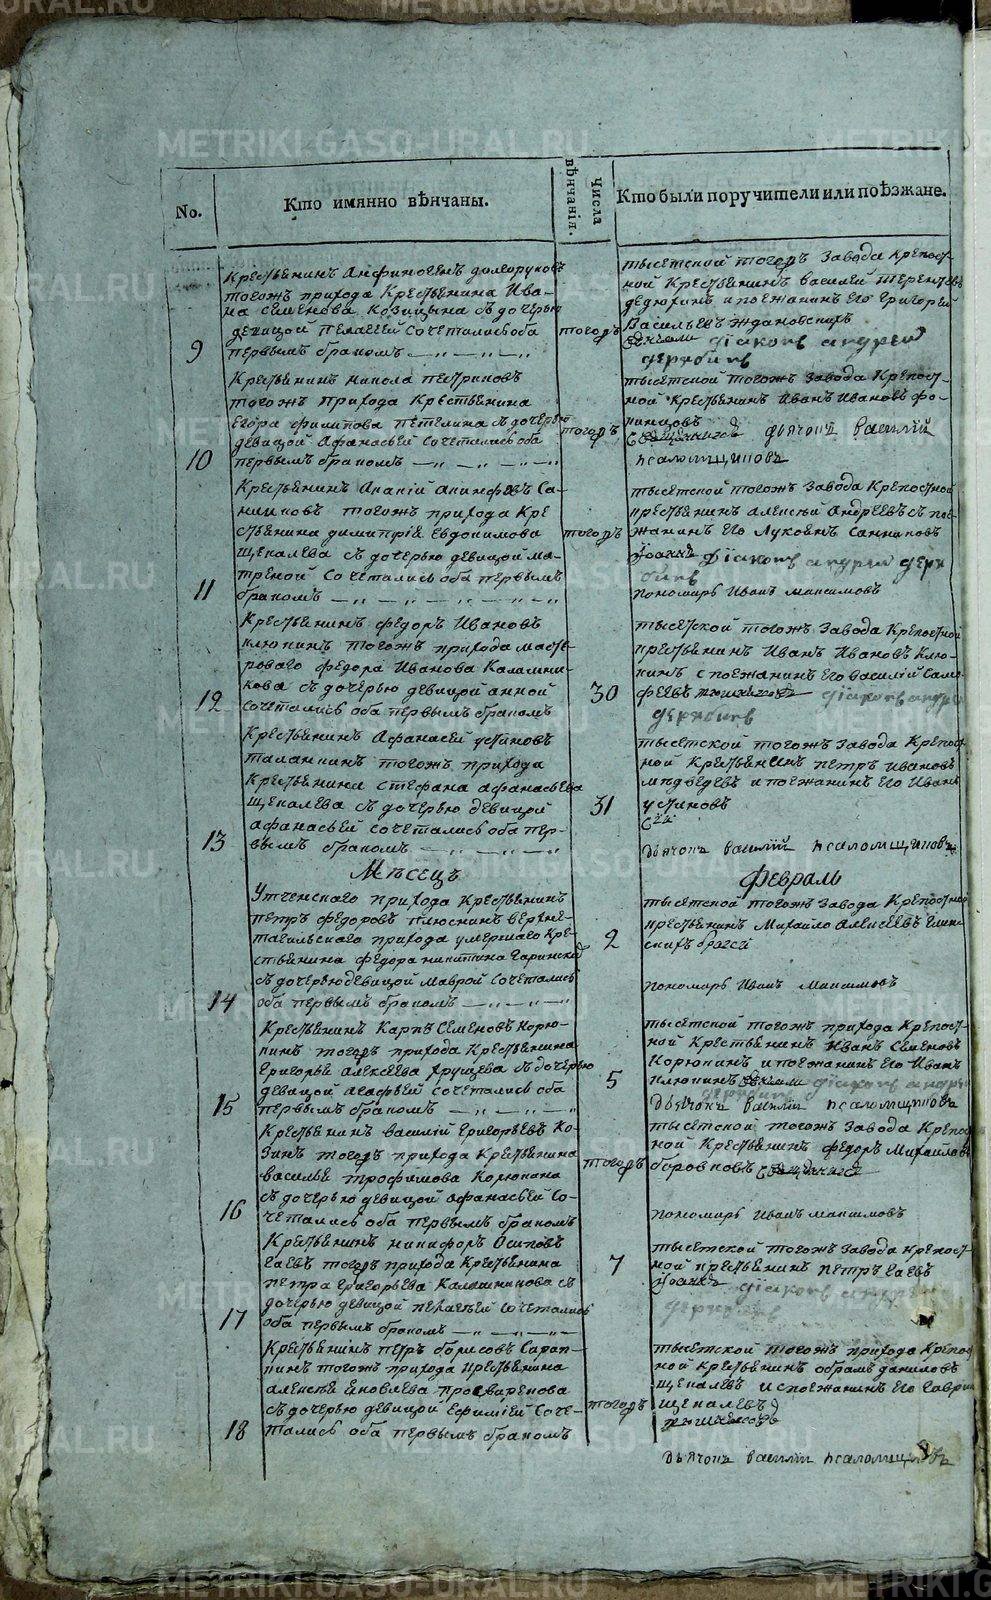 No.
Кто имянно вѣнчаны.
Числа вѣнчанія.
Кто были поручители или поѣзжане.
9
Крестьянинъ Анфиногенъ долгоруковъ
тогожъ прихода Крестьянина Ива-
на Семенова Козицына съ дочерью
девицой пелагеей сочетались оба
первымъ бракомъ
тогожъ
тысетской тогожъ Завода Крепост-
ной Крестьянинъ василей терентьевъ
дедюхинъ и поежанинъ Его Григорей
Васильевъ ждановскихъ
діаконъ андрей
дерябинъ
10
Крестьянинъ никола
тогожъ прихода Крестьянина
Егора филипова петелина съ дочерью
девицой Афанасьей сочетались оба
первымъ бракомъ
тогожъ
тысетской тогожъ Завода Крепост-
ной Крестьянинъ Иванъ Ивановъ
дьячокъ василій
псаломщиковъ
11
Крестьянинъ Ананій Акинфиевъ Са-
никовъ тогожъ прихода Кре
стьянина димитрія Евдокимова
Щекалева съ дочерью девицой ма-
треной Сочетались оба первымъ
бракомъ
тогожъ
тысетской тогожъ Завода Крепостной
крестьянинъ алексеи Андреевъ съ пое-
жанинъ Его Лукоянъ Санниковъ
діаконъ андреи деря
бинъ
пономарь Иванъ максимовъ
12
Крестьянинъ федоръ Ивановъ
клюкинъ тогожъ прихода масте-
роваго федора Иванова Калашни-
кова съ дочерью девицой анной
сочетались оба первымъ бракомъ
30
тысетской тогожъ Завода Крепостной
крестьянинъ Иванъ Ивановъ Клю-
кинъ с поежанинъ Его василий
діаконъ андрей
дерябинъ
13
Крестьянинъ Афанасей устиновъ
таланкинъ тогожъ прихода
Крестьянина стефана афанасьева
Щекалева съ дочерью девицой
афанасьей сочетались оба пер-
вымъ бракомъ
31
тысетской тогожъ Завода Крепост-
ной Крестьянинъ петръ Ивановъ
медведевъ и поежанинъ Его Иванъ
устиновъ
дьячокъ василій псаломщиковъ
Месецъ
февраль
14
Уткенскаго прихода Крестьянинъ
петръ федоровъ плюснинъ верхне-
тагильскаго прихода умершаго Кре-
стьянина федора никитина
съ дочерью девицой маврой сочетались
оба первымъ бракомъ
2
тысетской тогожъ Завода Крепостной
крестьянинъ Михайло Алексеевъ
пономарь Иванъ максимовъ
15
Крестьянинъ Карпъ Семеновъ Корю-
кинъ тогожъ прихода Крестьянина
Григорья алексеева хрущева съ дочерью
девицой агафьей сочетались оба
первымъ бракомъ
5
тысетской тогожъ прихода Крепост-
ной Крестьянинъ Иванъ Семеновъ
Корюкинъ и поежанинъ Его Иванъ
Клюкинъ діаконъ андрей
дерябинъ
дьячокъ василіи псаломщиковъ
16
Крестьянинъ василій Григорьевъ Ко-
зинъ тогожъ прихода Крестьянина
василья трофимова Корюкина
съ дочерью девицой афанасьей Со-
четались оба первымъ бракомъ
тогожъ
тысетской тогожъ Завода Крепост-
ной Крестьянинъ федоръ Михайловъ
боровковъ
пономарь Иванъ максимовъ
17
Крестьянинъ никифоръ Осиповъ
Гаевъ тогожъ прихода Крестьянина
петра Григорьева Калашникова съ
дочерью девицой пелагеей сочетались
оба первымъ бракомъ
7
тысетской тогожъ Завода Крепост-
ной крестьянинъ петръ Гаевъ
діаконъ андрей
дерябинъ
18
Крестьянинъ петръ борисовъ Сарап-
кинъ тогожъ прихода крестьянина
алексея Яковлева
съ дочерью девицой Ефимией Соче-
тались оба первымъ бракомъ
тогожъ
тысетской тогожъ прихода Крепост-
ной Крестьянинъ абрамъ даниловъ
Щекалевъ и споежанинъ Его Гаврила
Щекалевъ
дьячокъ василіи псаломщиковъ
METRIKI.GASO-URAL.RU